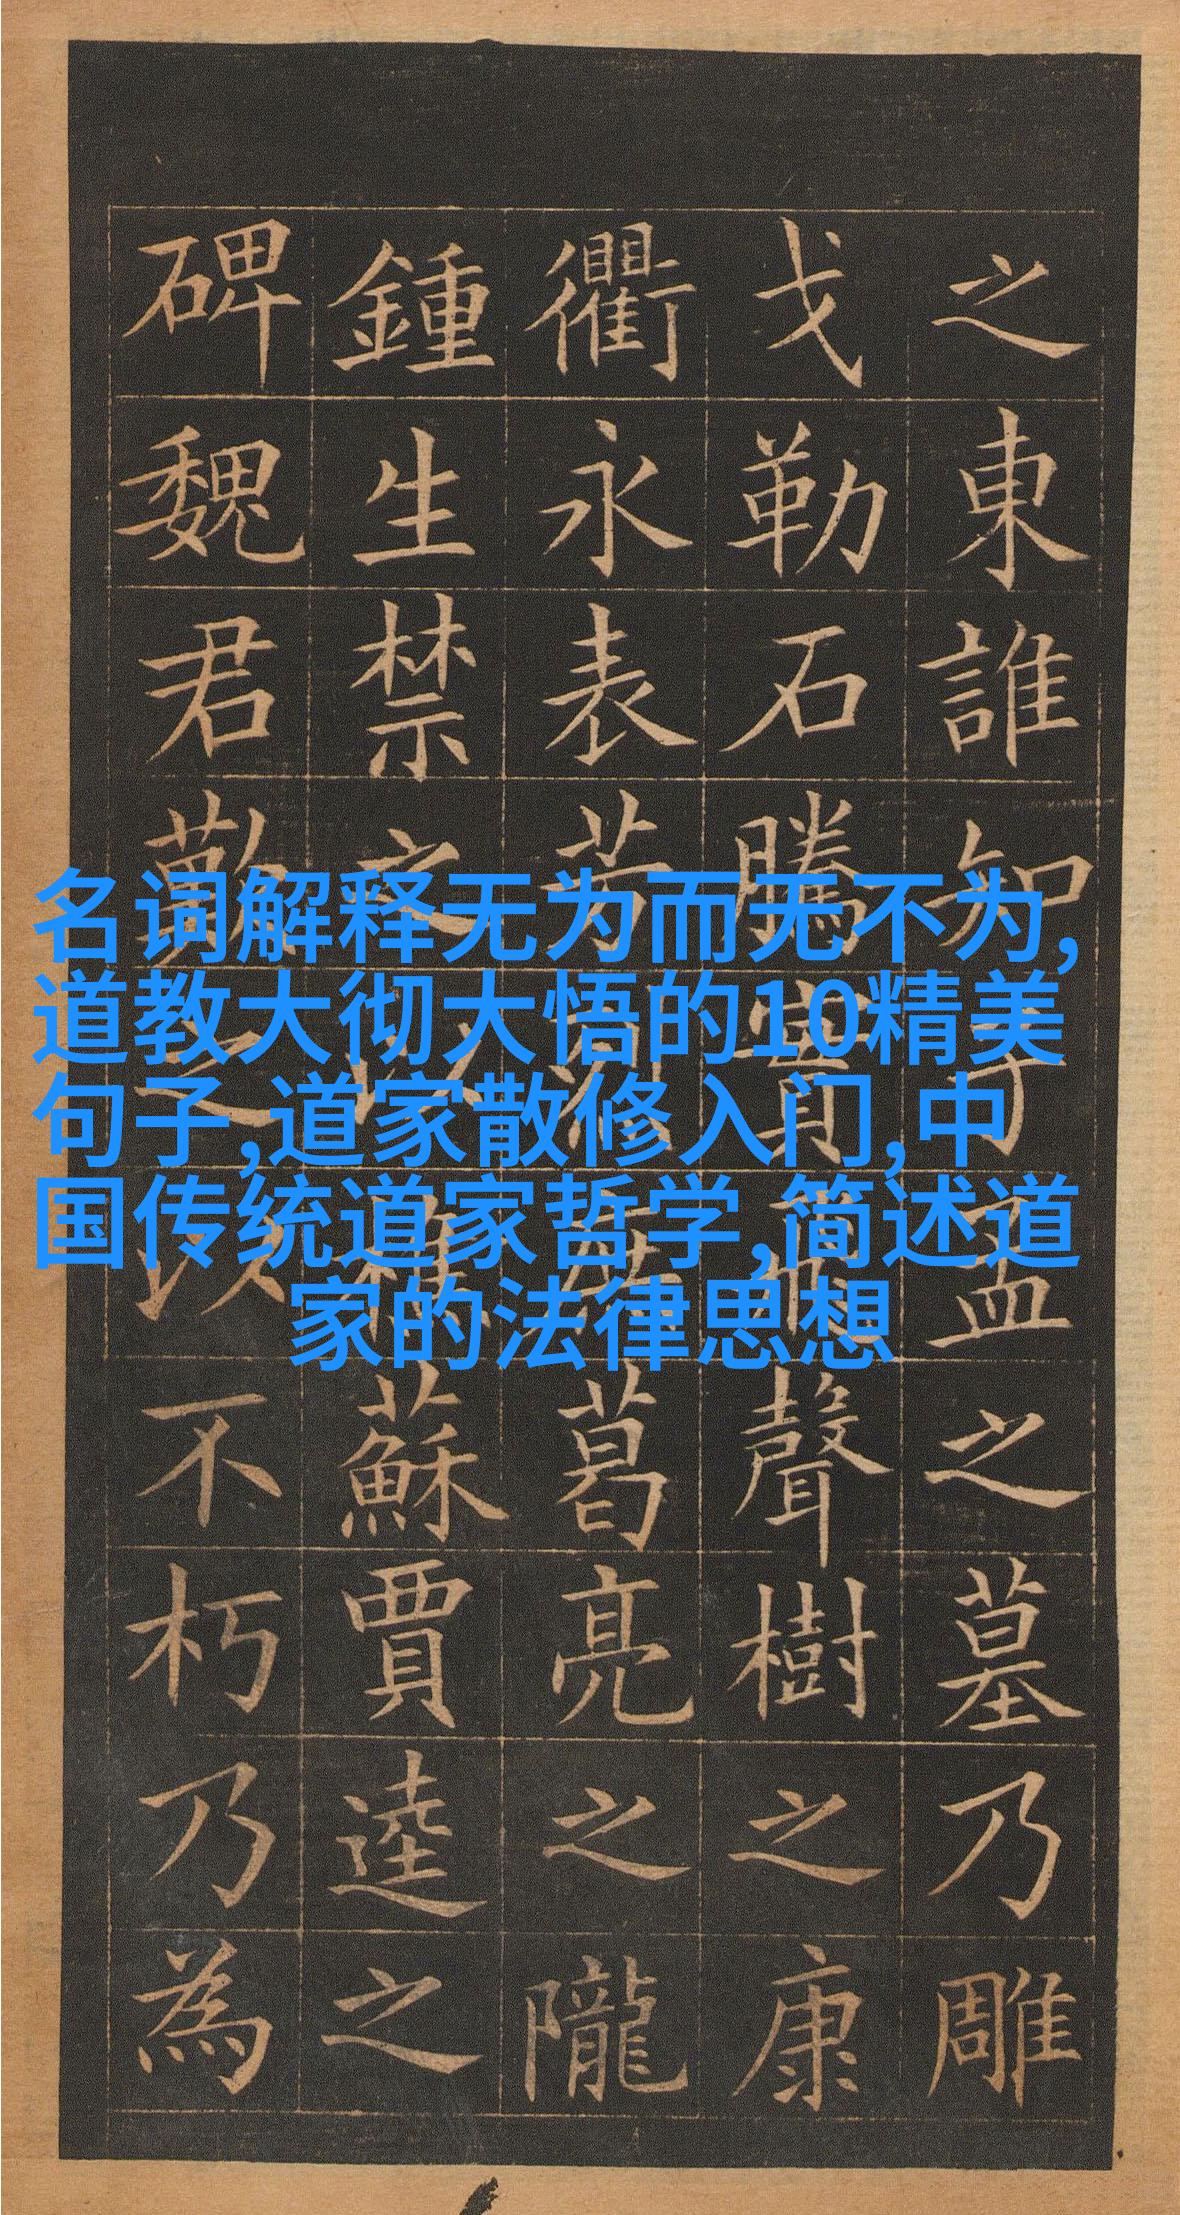 名词解释无为而无不为,
道教大彻大悟的10精美
句子,道家散修入门,中
国传统道家哲学,简述道
家的法律思想
之東誰知子孟之墓乃雕
戈勒石騰實飛聲樹之康
衢永表芳烈諸葛亮之隴
鍾生禁之以樵蘇賈逵之
碑魏君之以不朽乃為